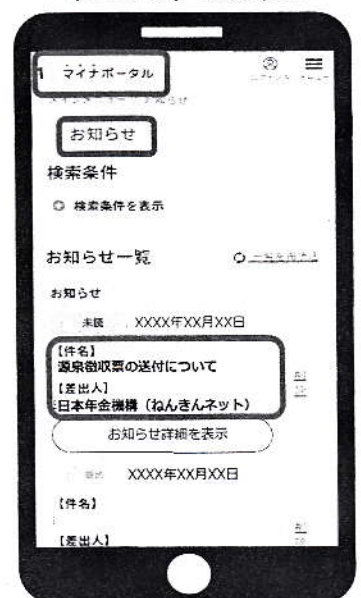 マイナポータル
お知らせ
検索条件
検索条件を表示
お知らせ一覧
お知らせ
未読 XXXX年XX月XX日
【件名】
源泉徴収票の送付について
【差出人】
日本年金機構（ねんきんネット）
お知らせ詳細を表示
XXXX年XX月XX日
【件名】
【差出人】